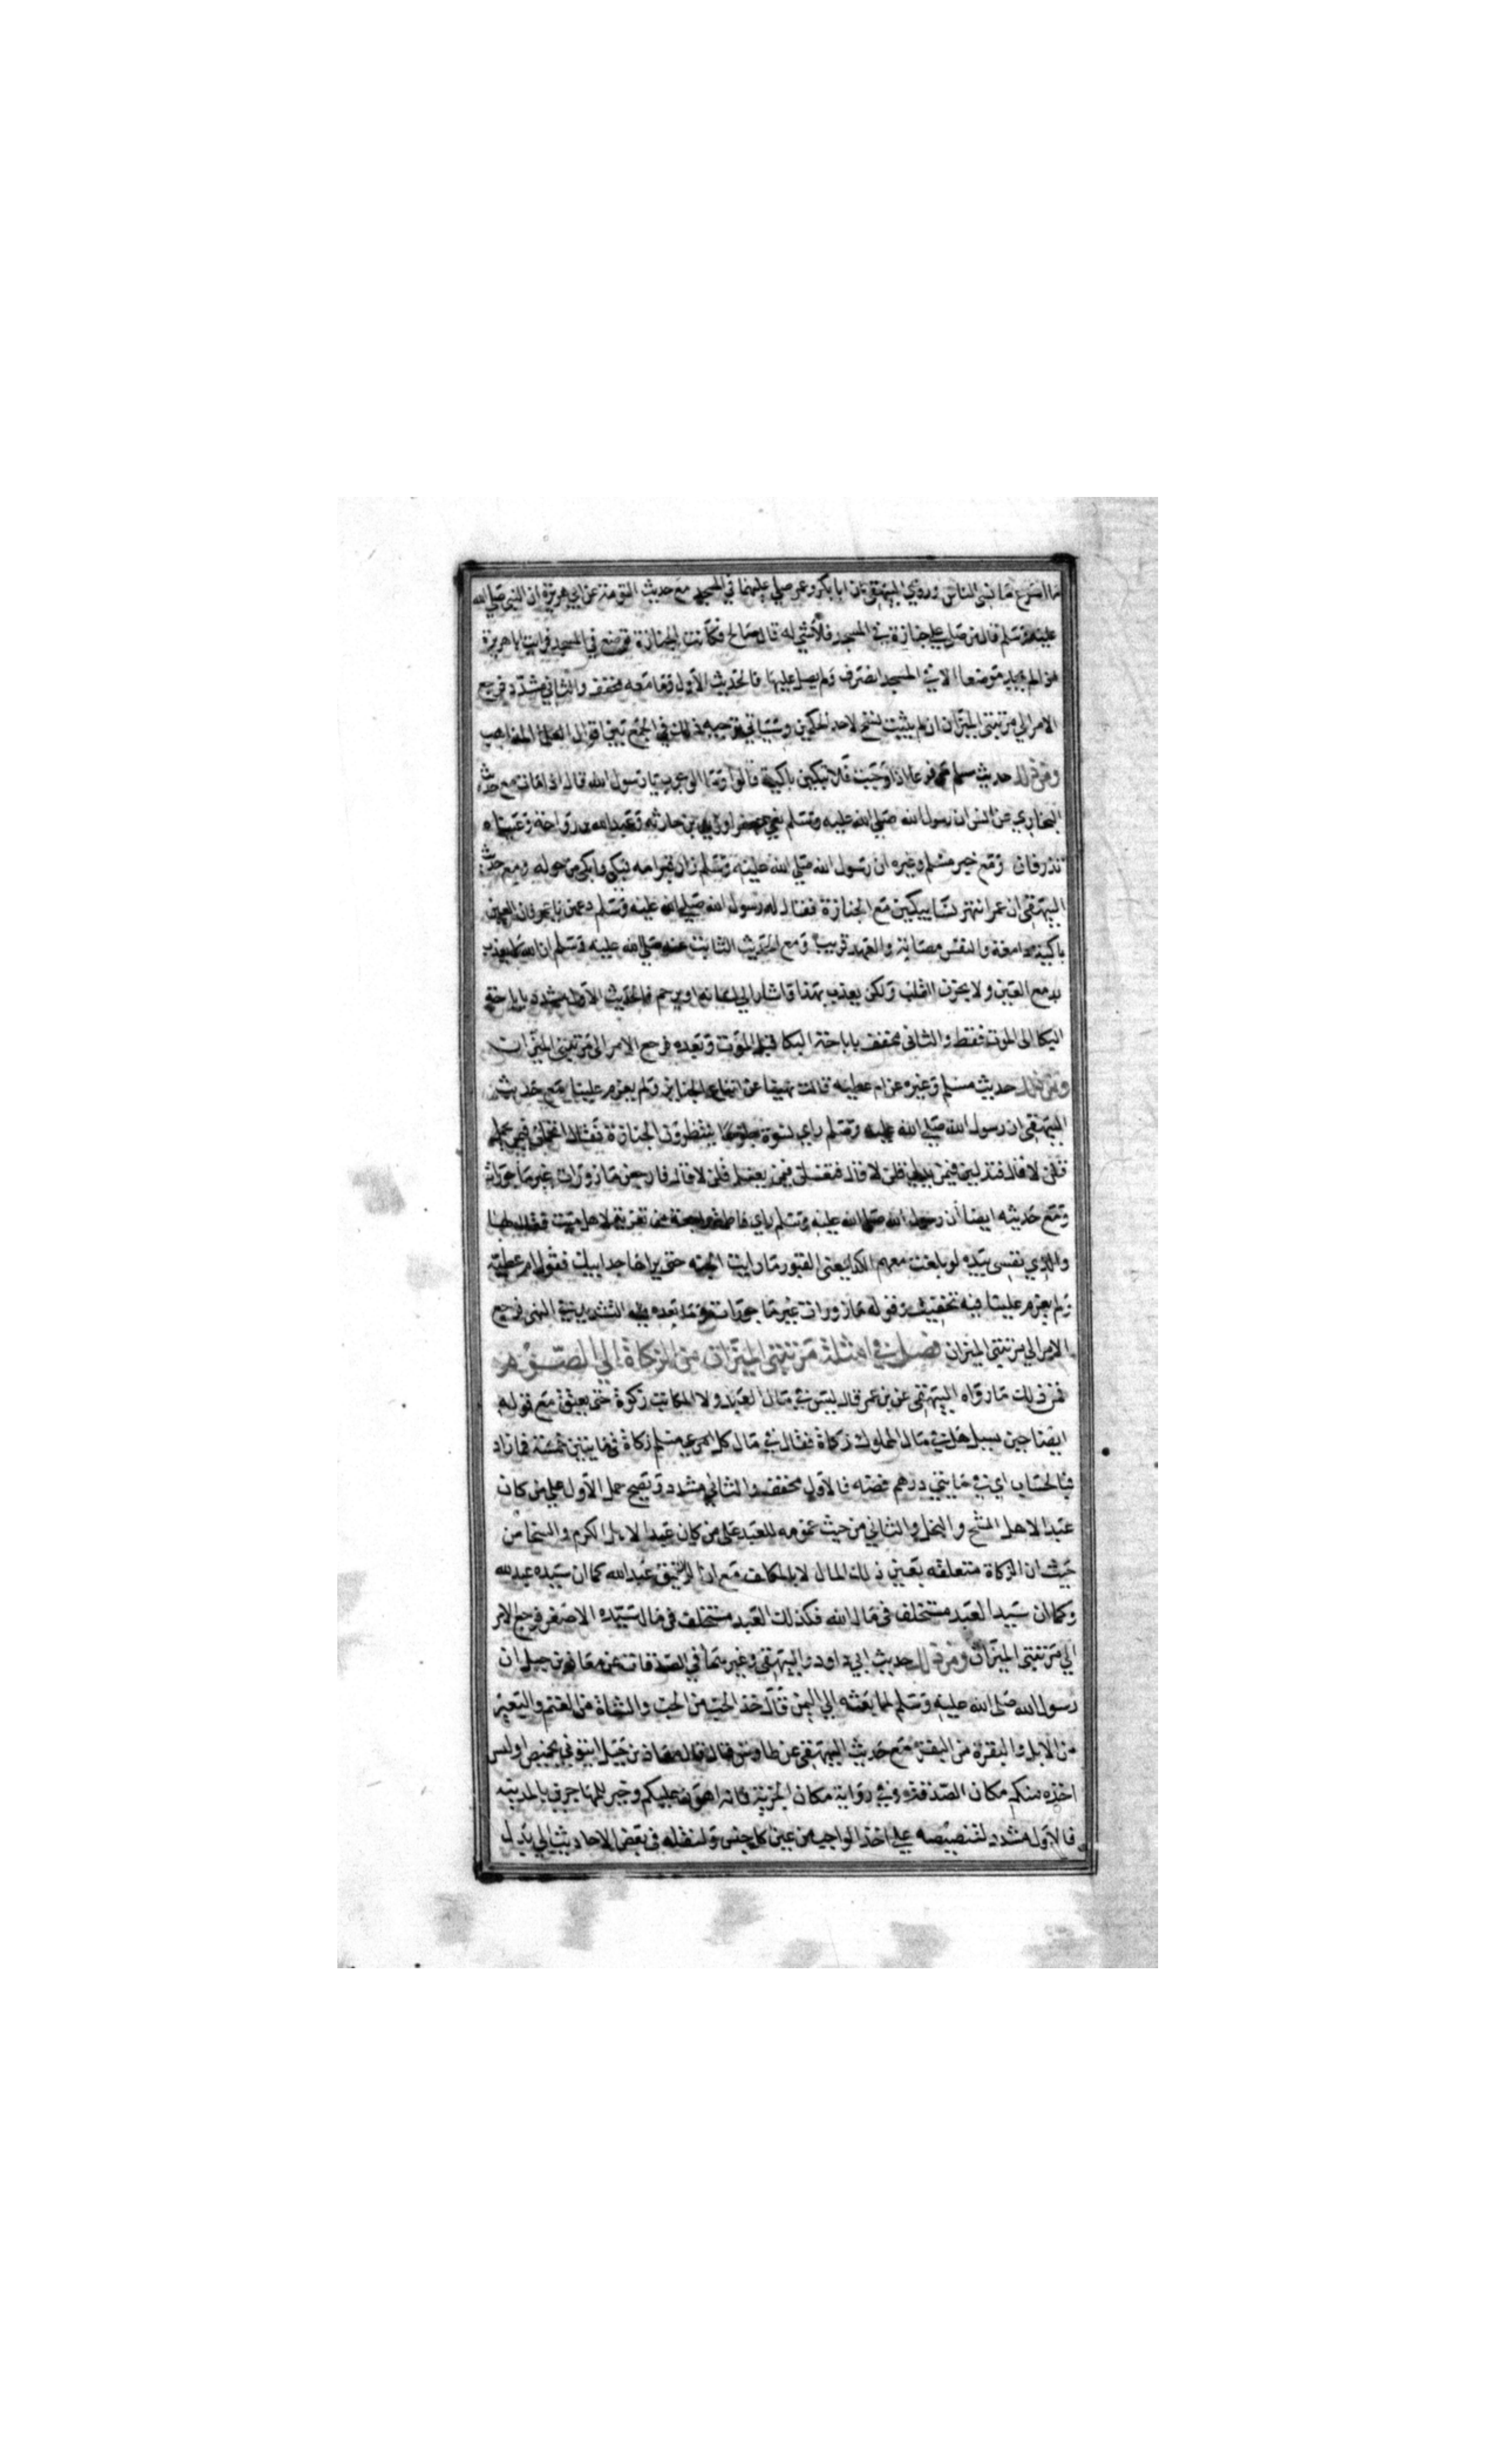 ما اسرع ما نسى الناس وروى البيهقى ان ابا بكر وعمر صلى عليهما في المسجد مع حديث التومة عن ابي هريرة ان النبي صلى الله
عليه وسلم قال من صلى على جنازة في المسجد فلا شي له قال صالح فكانت الجنازة توضع في المسجد فرايت ابا هريرة
اذا لم يجد موضعا الا في المسجد انصرف ولم يصل عليها فالحديث الاول وما معه مخفف والثاني مشدد فرجع
الامر الى مرتبتى الميزان ان لم يثبت نسخ لاحد الحكمين وسياتي توجيه ذلك في الجمع بين اقوال العلما المذاهب
ومن ذلك حديث مسلم مرفوعا اذا وجبت فلا تبكين باكية قالوا وما الوجوب يا رسول الله قال اذا مات مع حديث
البخاري عن انس ان رسول الله صلى الله عليه وسلم نعى جعفرا وزيد بن حارثه وعبد الله بن رواحة وعيناه
تذرفان ومع خبر مسلم وغيره ان رسول الله صلى الله عليه وسلم زار قبر امه فبكى وابكى من حوله ومع حديث
البيهقى ان عمر انتهر نسا يبكين مع الجنازة فقال له رسول الله صلى الله عليه وسلم دعهن يا عمر فان العين
باكية دامعة والنفس مصابة والعهد قريب ومع الحديث الثابت عنه صلى الله عليه وسلم ان الله لا يعذب
بدمع العين ولا بحزن القلب ولكن يعذب بهذا واشار الى لسانه او يرحم فالحديث الاول مشدد باباحة
البكا الى الموت فقط والثانى مخفف باباحة البكا قبل الموت وبعده فرجع الامر الى مرتبتى الميزان
ومن ذلك حديث مسلم وغيره عن ام عطيه قالت نهينا عن اتباع الجنايز ولم يعزم علينا مع حديث
البيهقى ان رسول الله صلى الله عليه وسلم راى نسوة جلوسا ينتظرون الجنازة فقال اتحملن فيمن يحمل
قلن لا قال فتدلين فيمن يدلى قلن لا قال فتغسلن فيمن يغسل قلن لا قال فارجعن مازورات غير ماجورات
ومع حديثه ايضا ان رسول الله صلى الله عليه وسلم راى فاطمة راجعة من تعزية لاهل ميت فقال لها
والذي نفسى بيده لو بلغت معهم الكدا يعنى القبور ما رايت الجنه حتى يراها جد ابيك فقول ام عطيه
ولم يعزم علينا فيه تخفيف وقوله مازورات غير ماجورات وما بعده فيه التشديد في النهى فرجع
الامر الى مرتبتى الميزان فصل في امثلة مرتبتى الميزان من الزكاة الى الصوم
فمن ذلك ما رواه البيهقى عن بن عمر قال ليس في مال العبد ولا المكاتب زكوة حتى يعتق مع قوله
ايضا حين سيل هل في مال المملوك زكاة فقال في مال كل امرى مسلم زكاة في مايتين خمسة فما زاد
فبالحساب اي في مايتي درهم فضه فالاول مخفف والثاني مشدد ويصح حمل الاول على من كان
عبدا لاهل الشح والبخل والثاني من حيث عمومه للعبد على من كان عبدا لاهل الكرم والسخا من
حيث ان الزكاة متعلقه بعين ذلك المال لا بالمكلف مع ان الرقيق عبد الله كما ان سيده عبد الله
وكما ان سيد العبد مستخلف في مال الله فكذلك العبد مستخلف في مال سيده الاصغر فرجع الامر
الى مرتبتى الميزان ومن ذلك حديث ابي داود والبيهقى وغيرهما في الصدقات عن معاذ بن جبل ان
رسول الله صلى الله عليه وسلم لما بعثه الى اليمن قال خذ الحب من الحب والشاة من الغنم والبعير
من الابل والبقرة من البقر مع حديث البيهقى عن طاوس قال قال معاذ بن جبل ايتونى بخميص او لبيس
اخذه منكم مكان الصدقة وفي رواية مكان الجزية فانه اهون عليكم وخير للمهاجرين بالمدينه
فالاول مشدد لتنصيصه على اخذ الواجب من عين كل جنس ولنقله في بعض الاحاديث الى بدل